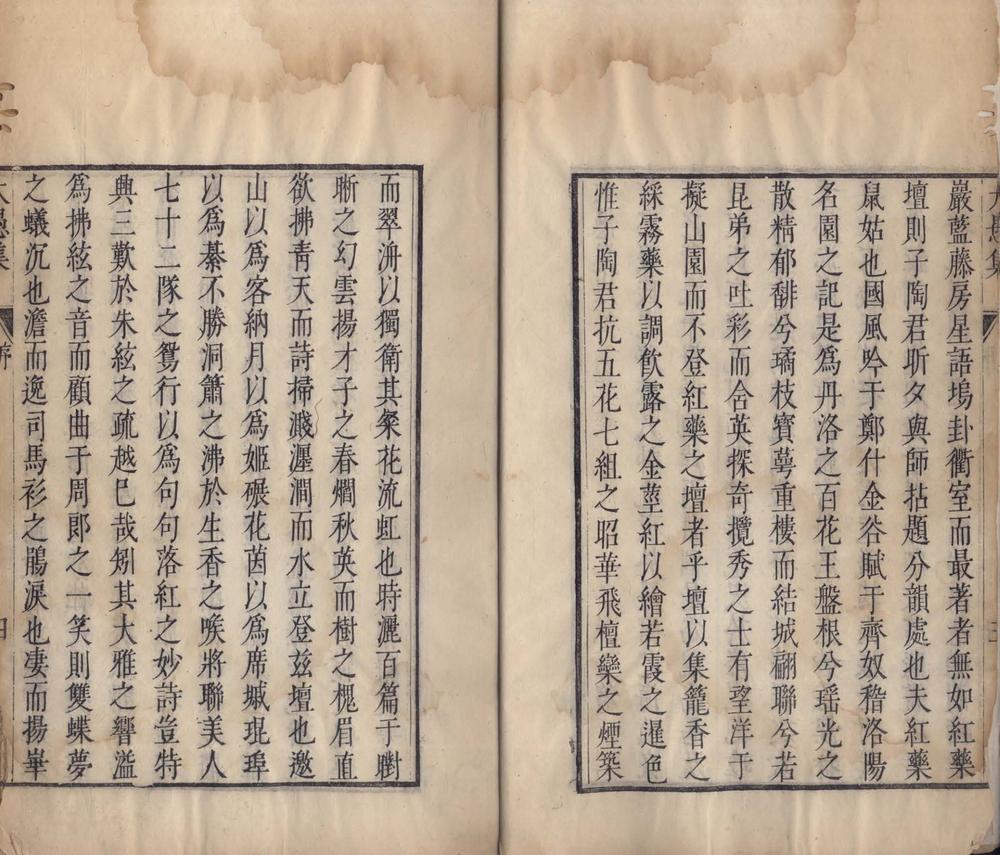 巖藍藤房星語塢卦衢室而最著者無如紅藥
壇則子陶君昕夕與師拈題分韻處也夫紅藥
鼠姑也國風吟于鄭什金谷賦于齊奴稽洛陽
名園之記是爲丹洛之百花王盤根兮瑶光之
散精郁馡兮璚枝寶蕚重樓而結城翩聯兮若
昆弟之吐彩而含英探奇攬秀之士有望洋于
擬山園而不登紅藥之壇者乎壇以集籠香之
綵霧藥以調飲露之金莖紅以繪若霞之暹色
惟子陶君抗五花七組之昭華飛檀欒之煙築
而翠洀以獨衛其粲花流虹也時灑百篇于
晰之幻雲揚才子之春燗秋英而樹之槐眉直
欲拂靑天而詩掃濺湹澗而水立登兹壇也邀
山以爲客納月以爲姬碾花茵以爲席瑊琨琫
以爲綦不勝洞簫之沸於生香之喉將聯美人
七十二隊之鴛行以爲句句落紅之妙詩豈特
興三歎於朱絃之疏越巳哉矧其大雅之響溢
爲拂絃之音而顧曲于周郎之一笑則雙蝶夢
之蟻沉也澹而逸司馬衫之鵑淚也凄而揚崋
集
序
四